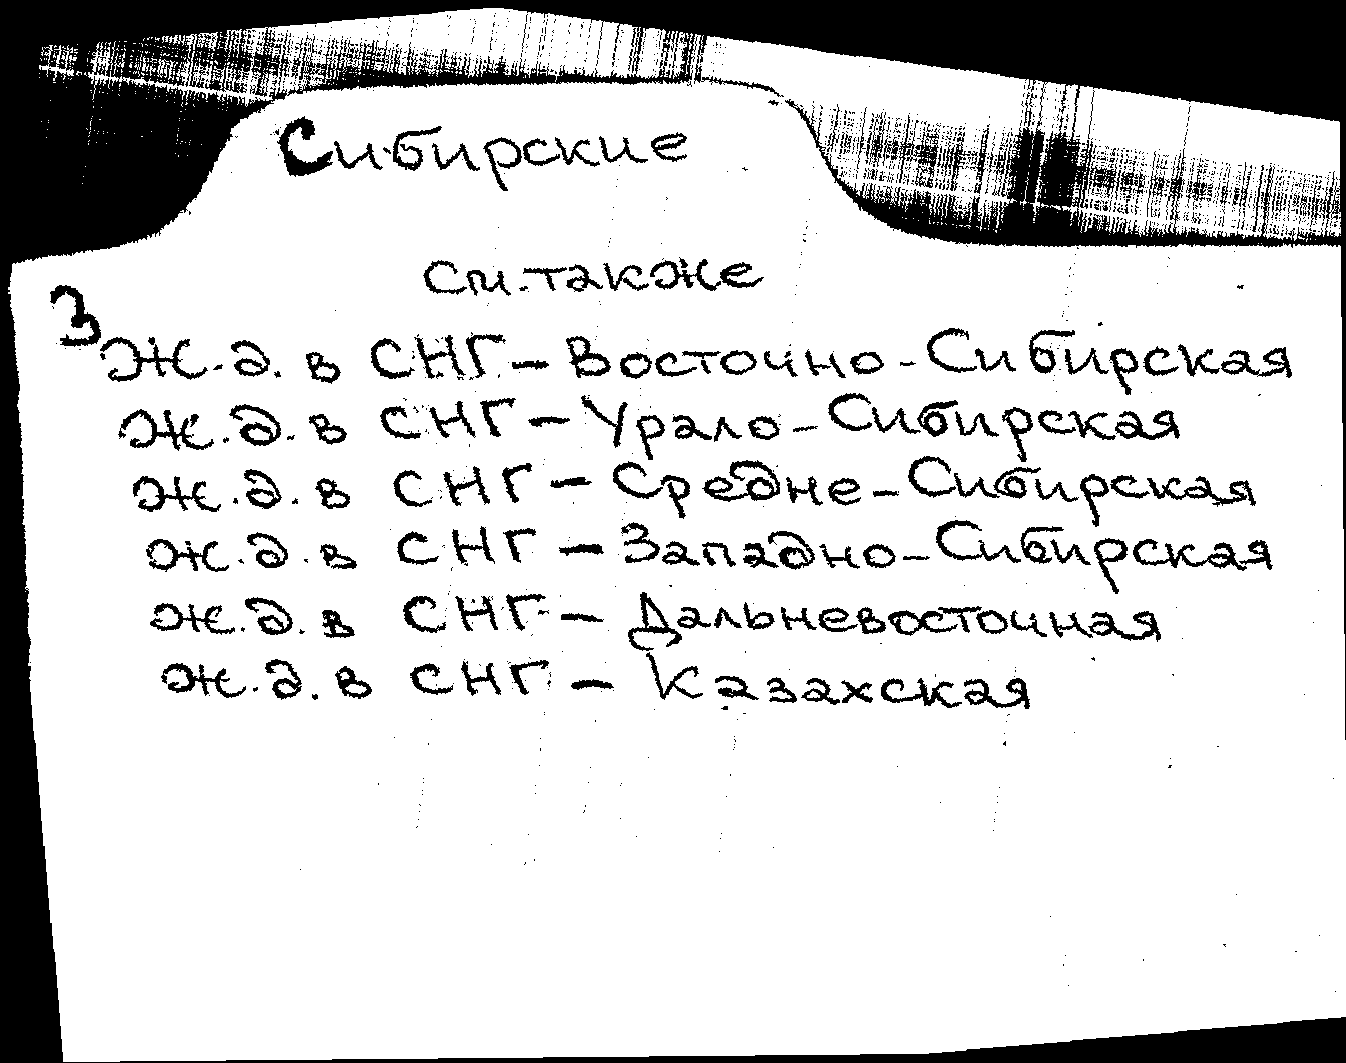 Сибирские
см. также
3
ж.д. в СНГ – Восточно-Сибирская
ж.д. в СНГ – Урало-Сибирская
ж.д. в СНГ – Средне-Сибирская
ж.д. в СНГ – Западно-Сибирская
ж.д. в СНГ – Дальневосточная
ж.д. в СНГ – Казахская